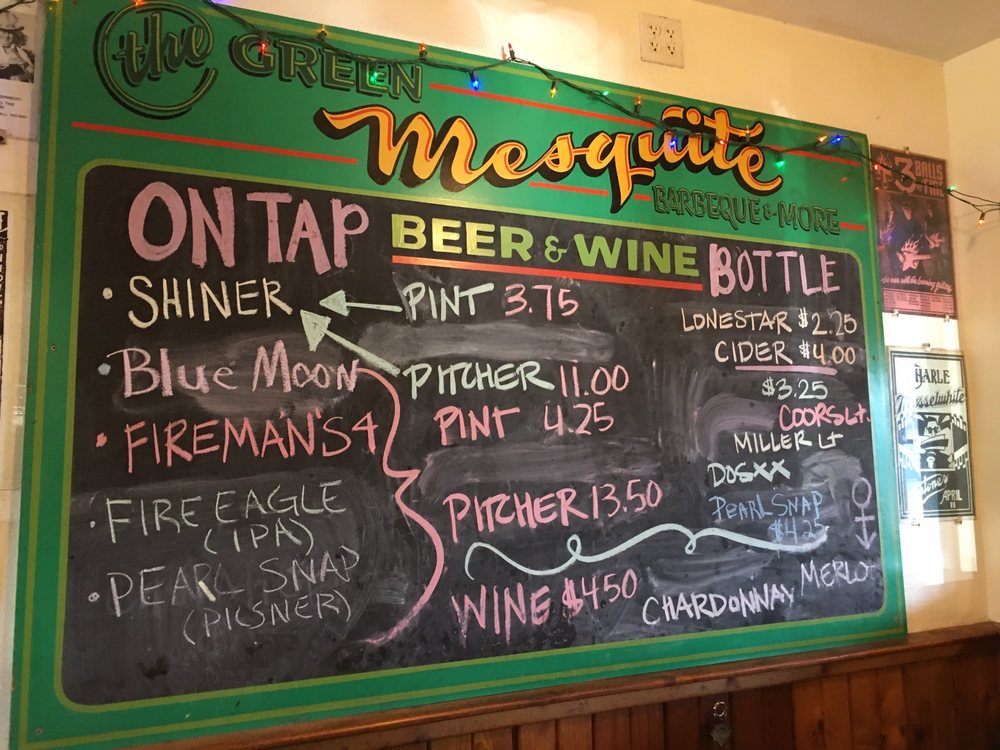 the GREEN
Mesquite
BARBEQUE & MORE
BEER & WINE
ON TAP
• SHINER
• Blue Moon
• FIREMAN'S 4
• FIRE EAGLE
(IPA)
• PEARL SNAP
(PILSNER)
PINT 3.75
PITCHER 11.00
PINT 4.25
PITCHER 13.50
WINE $4.50
CHARDONNAY
MERLOT
BOTTLE
LONESTAR $2.25
CIDER $4.00
$3.25
COORS Lt.
MILLER Lt
DOS XX
PEARL SNAP
$4.25
3 BALLS
HARLE
Musselwhite
APRIL